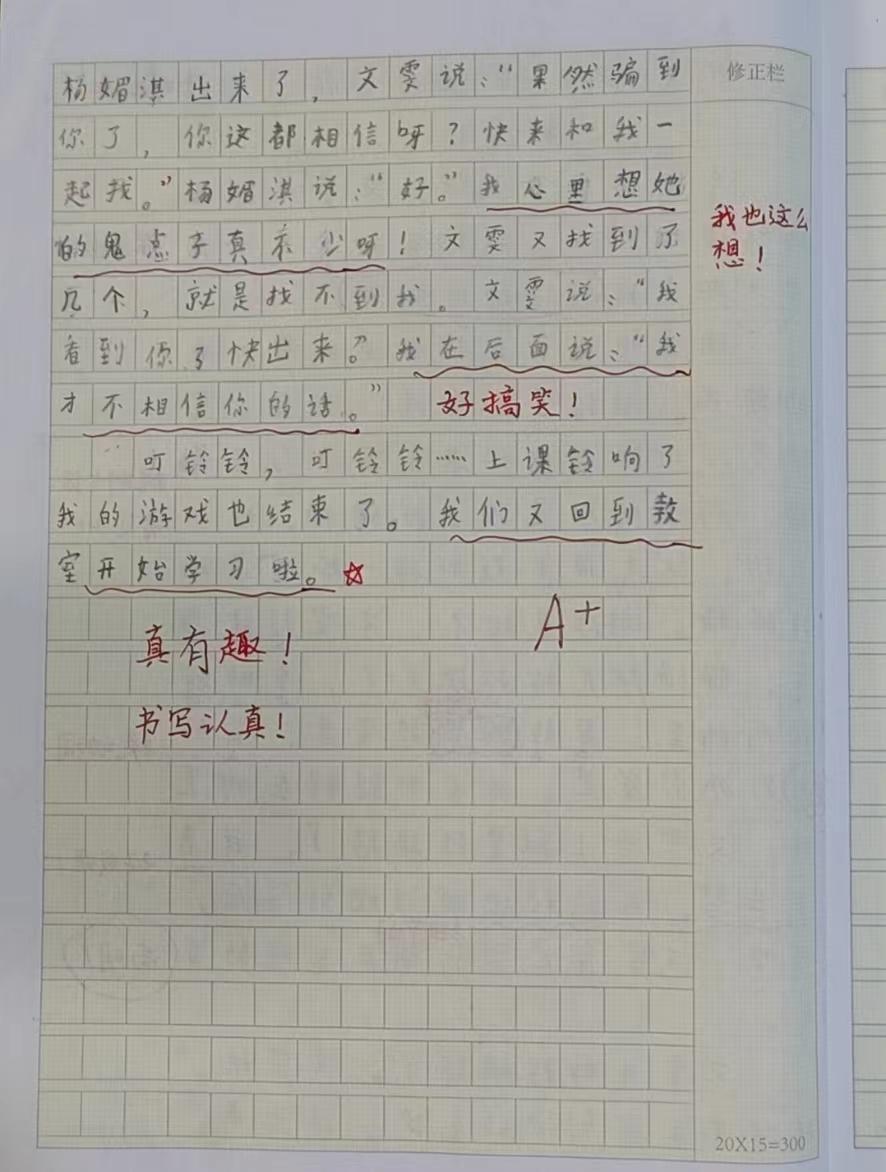 修正栏
杨媚淇出来了，文雯说：“果然骗到
你了，你这都相信呀？快来和我一
起找。”杨媚淇说：“好。”我心里想她
的鬼点子真不少呀！文雯又找到了
我也这么
想！
几个，就是找不到我。文雯说：“我
看到你了快出来。”我在后面说：“我
才不相信你的话。”
好搞笑！
叮铃铃，叮铃铃……上课铃响了
我的游戏也结束了。我们又回到教
室开始学习啦。
A+
真有趣！
书写认真！
20X15=300